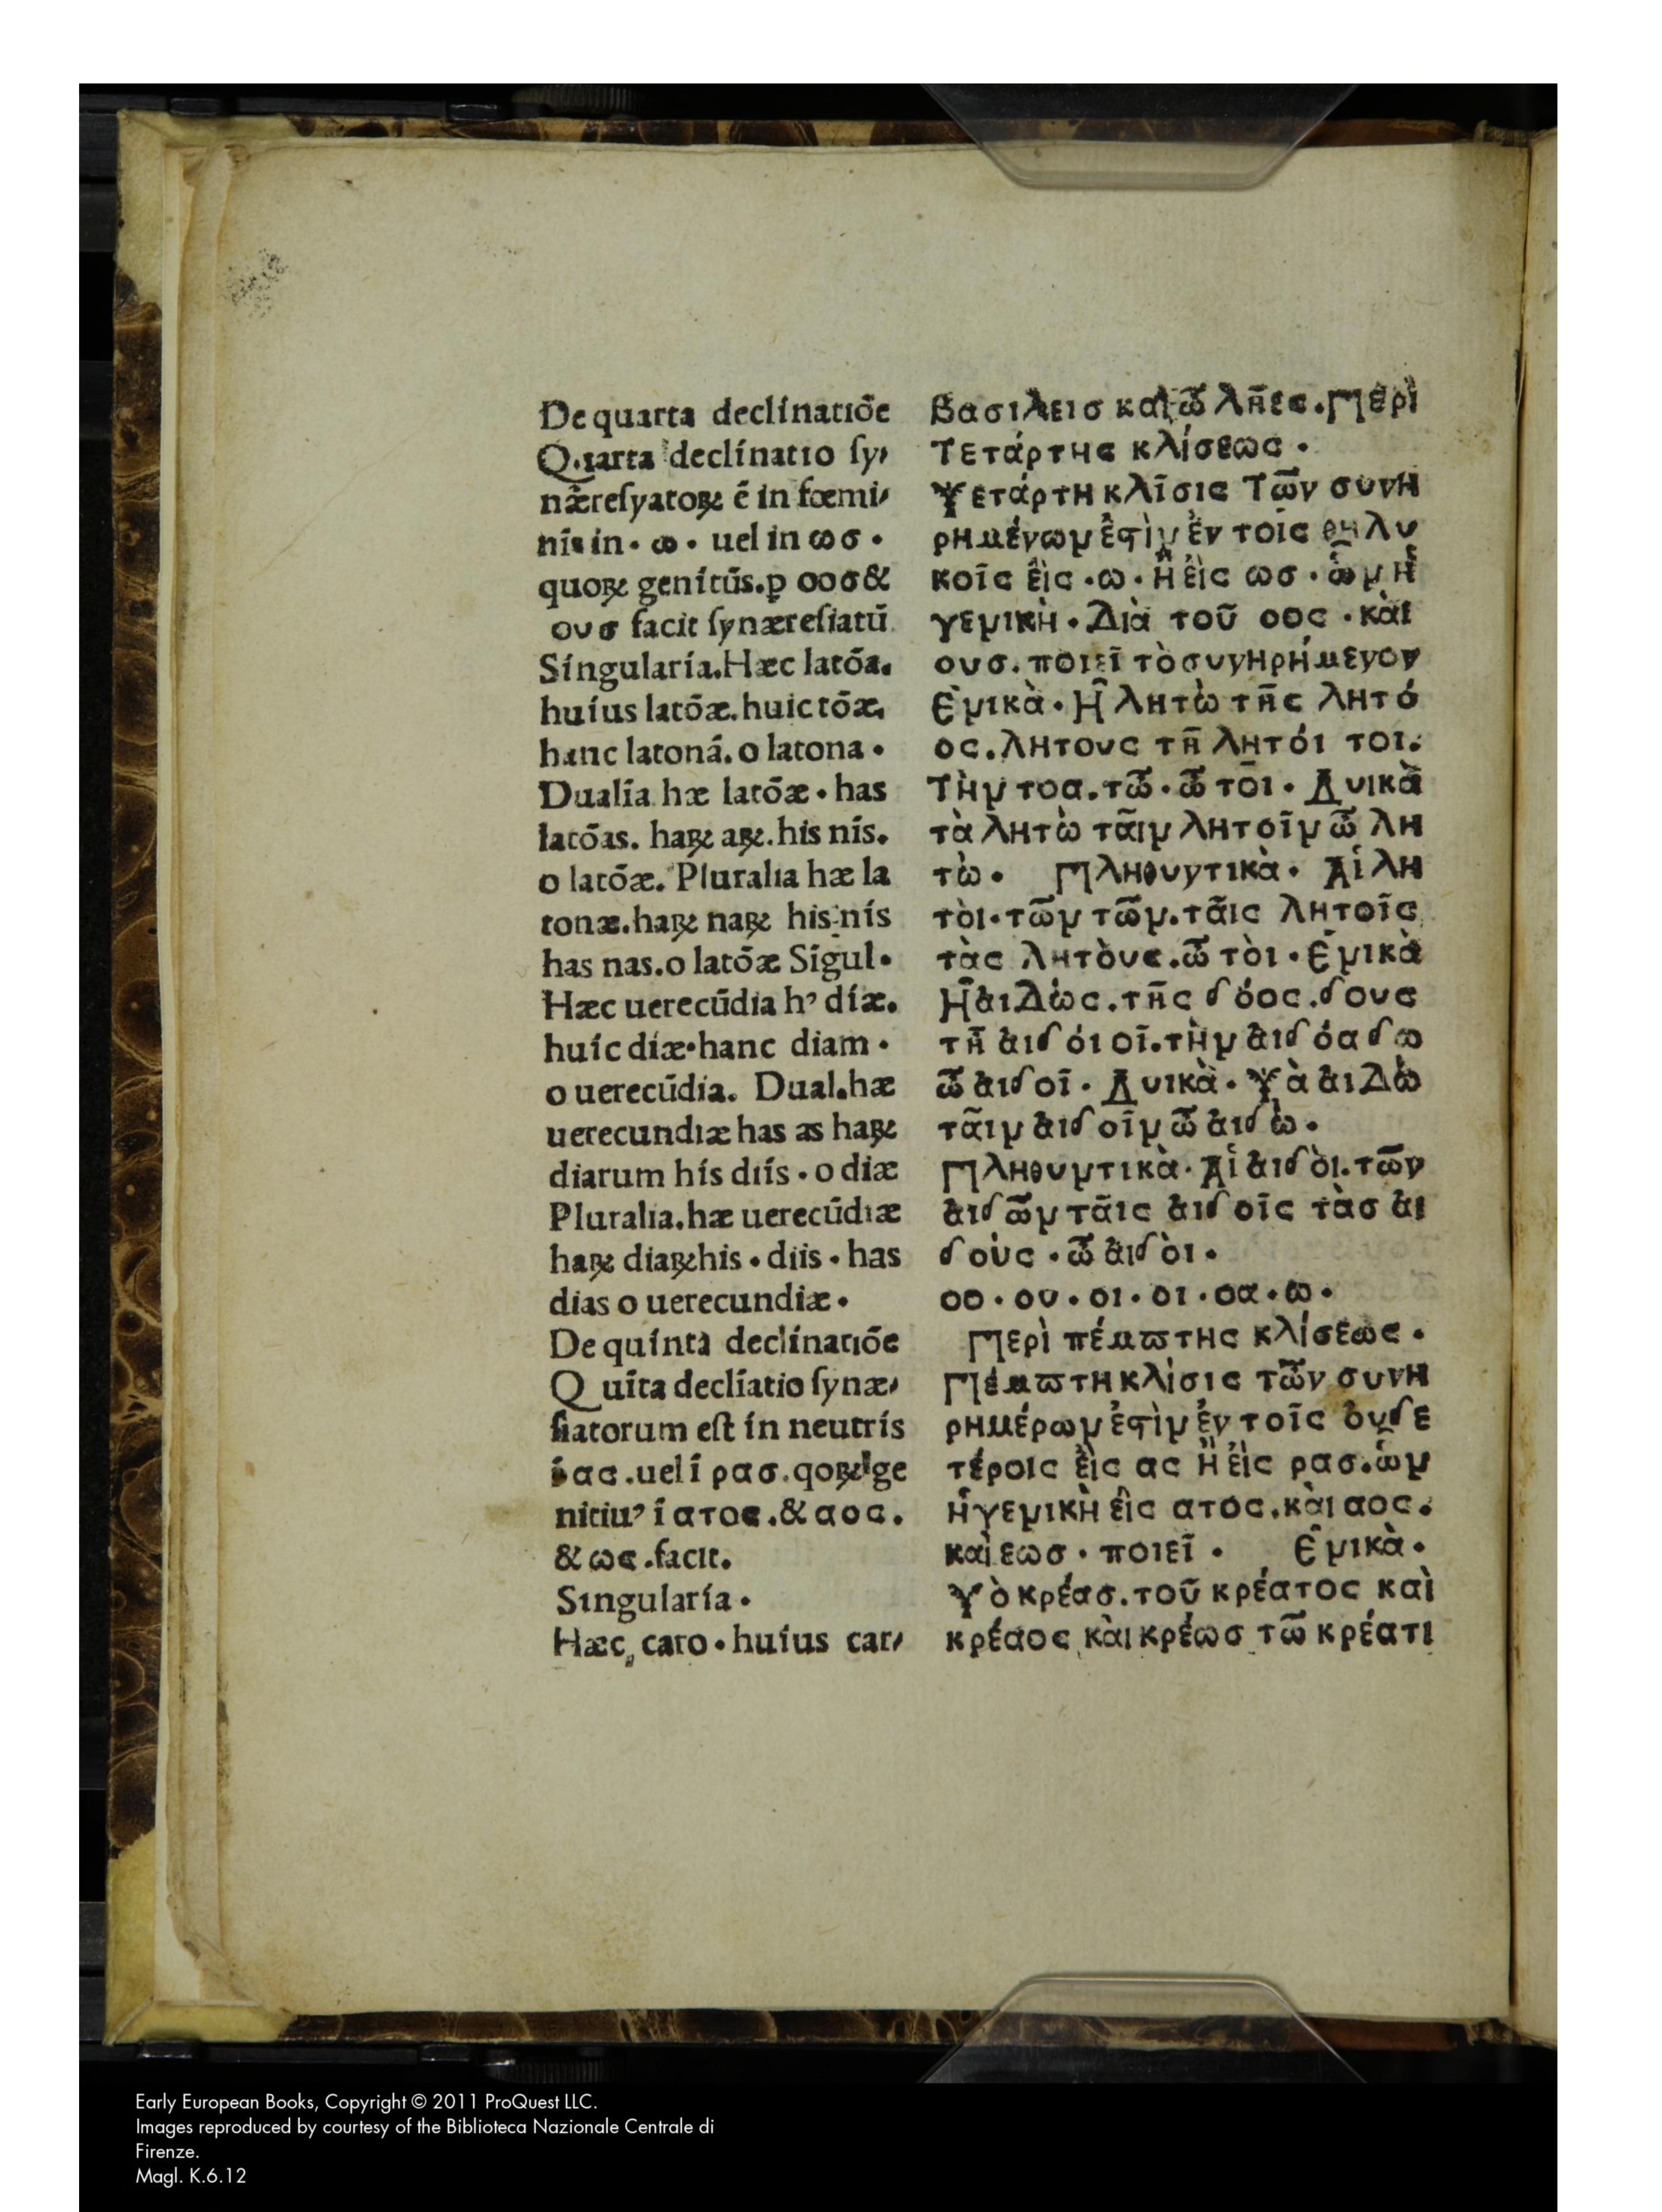 De quarta declínatiōe
Q.ıarta declínatıo ſy,
næreſyatoꝝ ē in fœmi,
nís in · ω · uel in ωσ ·
quoꝝ genítūs.ꝑ οοσ&
ουσ facit ſynæreſiatū
Síngularía.Hæc latōa.
huíus latōæ.huic tōæ.
hanc latonā. o latona ·
Dualía hæ latōæ · has
latōas. haꝝ aꝝ.his nís.
o latōæ. Pluralıa hæ la
tonæ.haꝝ naꝝ his nís
has nas.o latōæ Sígul·
Hæc uerecūdia h’ díæ.
huíc díæ·hanc diam ·
o uerecūdia. Dual.hæ
uerecundıæ has as haꝝ
diarum hís dıís · o diæ
Pluralıa.hæ uerecūdıæ
haꝝ diaꝝ his · diis · has
dias o uerecundiæ ·
De quínta declínatıōe
Q uīta declíatio ſynæ,
ſiatorum eſt ín neutrís
ī ας .uel ī ρασ.qoꝝ ge
nitiu’ ī ατος.& αος.
& ως .facıt.
Sıngularía ·
Hæc caro · huíus car,
βασιλεισ καὶ ὦ λῆες.Περὶ
Τετάρτης κλίσεως ·
Τετάρτη κλῖσις Τῶν συνη
ρημένων ἐστὶν ἐν τοῖς θηλυ
κοῖς ἐὶς ·ω· ἢ ἐὶς ωσ · ὧν ἡ
γενικὴ · Διὰ τοῦ οος · κὰι
ουσ. ποιεῖ τὸ συνηρήμενον
Ενικὰ · Ἡ λητὼ τῆς λητό
ος.λητους τῆ λητόι τοι.
Τὴν τοα.τῶ·ὦ τοῖ · Δυικὰ
τὰ λητὼ ταῖν λητοῖν ὦ λη
τὼ · Πληθυντικὰ · Αἱ λη
τὸι·τῶν τῶν.τᾶις λητοῖς
τὰς λητὸυς.ὦ τὸι · Ενικὰ
Ἡ ἀιΔὼς.τῆς δόος.δους
τῆ ἀιδόι οῖ.τὴν ἀιδόα δω
ὦ ἀιδοῖ · Δυικὰ · Τὰ ἀιΔὼ
τᾶιν ἀιδοῖν ὦ ἀιδὼ ·
Πληθυντικὰ · Αἱ ἀιδὸι.τῶν
ἀιδῶν τᾶις ἀιδοῖς τὰσ ἀι
δοὺς · ὦ ἀιδὸι ·
οο · ου · οι · οι · οα · ω ·
Περὶ πέμπτης κλίσεως ·
Πέμπτη κλὶσις τῶν συνη
ρημέρων ἐστὶν ἐν τοῖς ὀυδε
τέροις ἐὶς ας ἢ ἐὶς ρασ.ὧν
ἡ γενικὴ ἐὶς ατος.κὰι αος.
καὶ εωσ · ποιεῖ · Ενικὰ ·
Τὸ κρέασ.τοῦ κρέατος καὶ
κρέαος κὰι κρέωσ τῶ κρέατι
Early European Books, Copyright © 2011 ProQuest LLC.
Images reproduced by courtesy of the Biblioteca Nazionale Centrale di
Firenze.
Magl. K.6.12